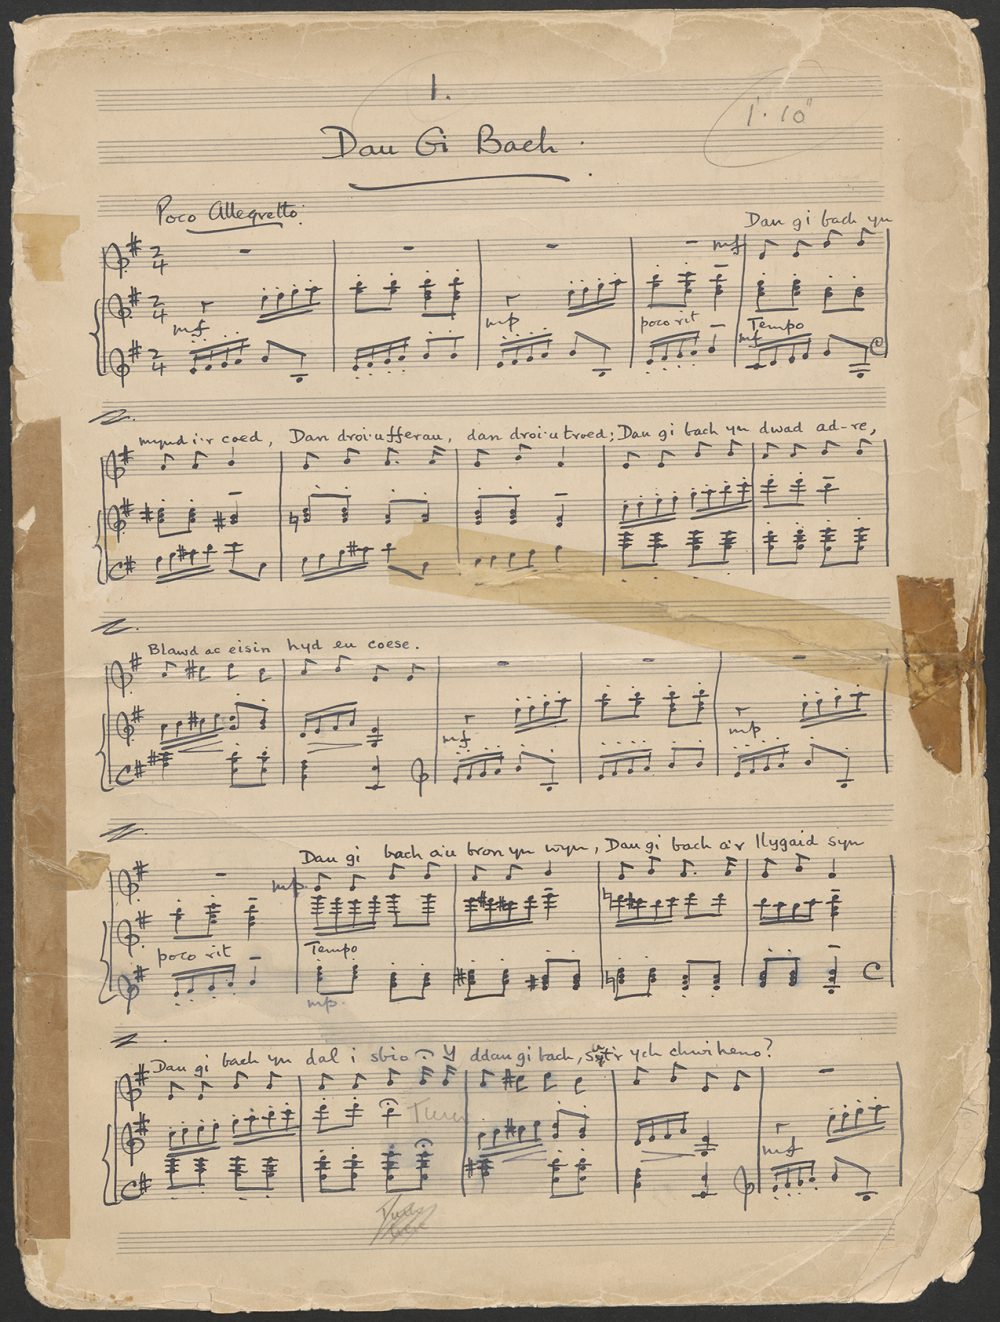 1.
1'. 10"
Dau Gi Bach.
Poco Allegretto.
Dau gi bach yn
mf
mf
mp
poco rit
Tempo
mf
mynd i'r coed, Dan droi·u fferau, dan droi·u troed; Dau gi bach yn dwad ad-re,
Blawd ac eisin hyd eu coese.
mf
mp
Dau gi bach a'u bron yn wyn, Dau gi bach a'r llygaid syn
mp
poco rit
Tempo
mp.
Dau gi bach yn dal i sbio Y ddau gi bach, Sut'r ych chwi heno?
Turn
mf